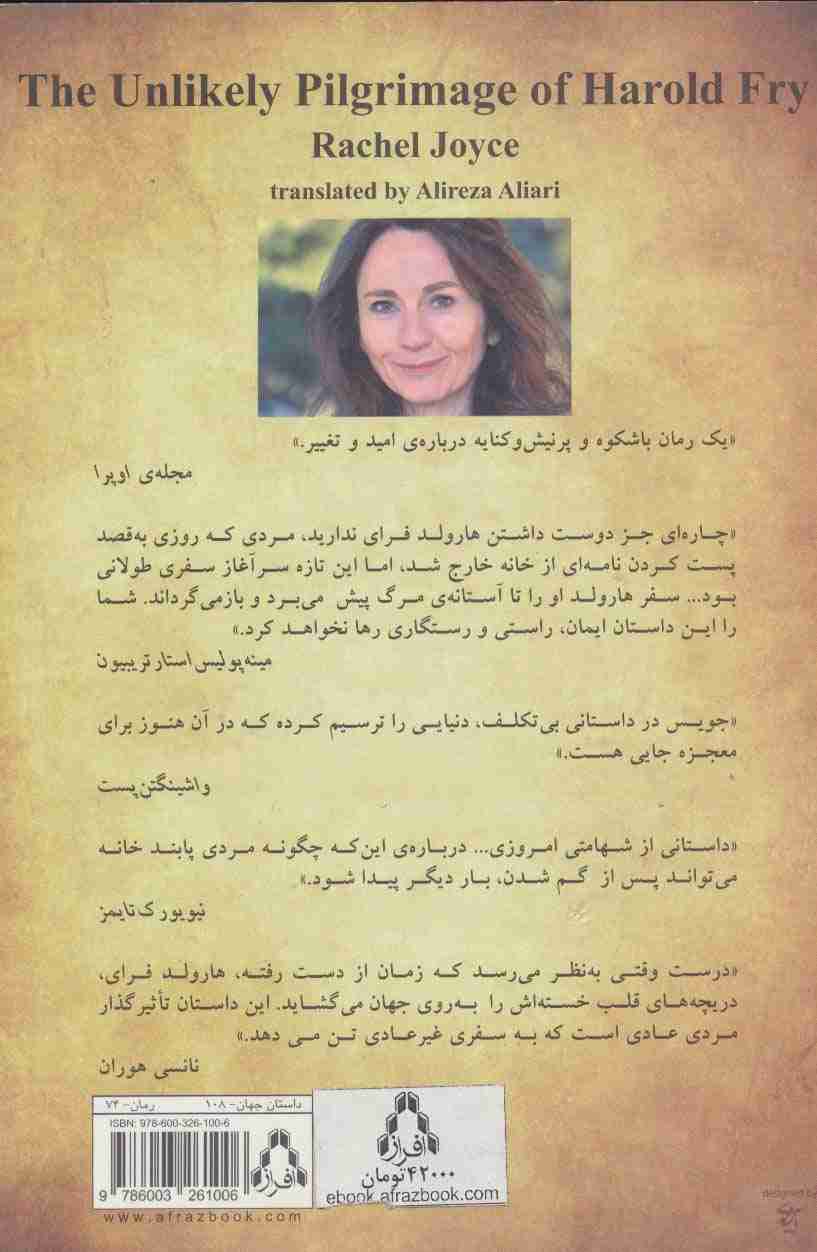 The Unlikely Pilgrimage of Harold Fry
Rachel Joyce
translated by Alireza Aliari
«یک رمان باشکوه و پرنیش‌وکنایه درباره‌ی امید و تغییر.»
مجله‌ی اوپرا
«چاره‌ای جز دوست داشتن هارولد فرای ندارید، مردی که روزی به‌قصد
پست کردن نامه‌ای از خانه خارج شد، اما این تازه سرآغاز سفری طولانی
بود... سفر هارولد او را تا آستانه‌ی مرگ پیش می‌برد و بازمی‌گرداند. شما
را این داستان ایمان، راستی و رستگاری رها نخواهد کرد.»
مینه‌پولیس استار تریبیون
«جویس در داستانی بی‌تکلف، دنیایی را ترسیم کرده که در آن هنوز برای
معجزه جایی هست.»
واشینگتن‌پست
«داستانی از شهامتی امروزی... درباره‌ی این‌که چگونه مردی پابند خانه
می‌تواند پس از گم شدن، بار دیگر پیدا شود.»
نیویورک‌تایمز
«درست وقتی به‌نظر می‌رسد که زمان از دست رفته، هارولد فرای،
دریچه‌های قلب خسته‌اش را به‌روی جهان می‌گشاید. این داستان تأثیرگذار
مردی عادی است که به سفری غیرعادی تن می دهد.»
نانسی هوران
داستان جهان- ۱۰۸ رمان- ۷۴
ISBN: 978-600-326-100-6
افراز
9 786003 261006
www.afrazbook.com
افراز
۴۲۰۰۰تومان
ebook.afrazbook.com
designed by